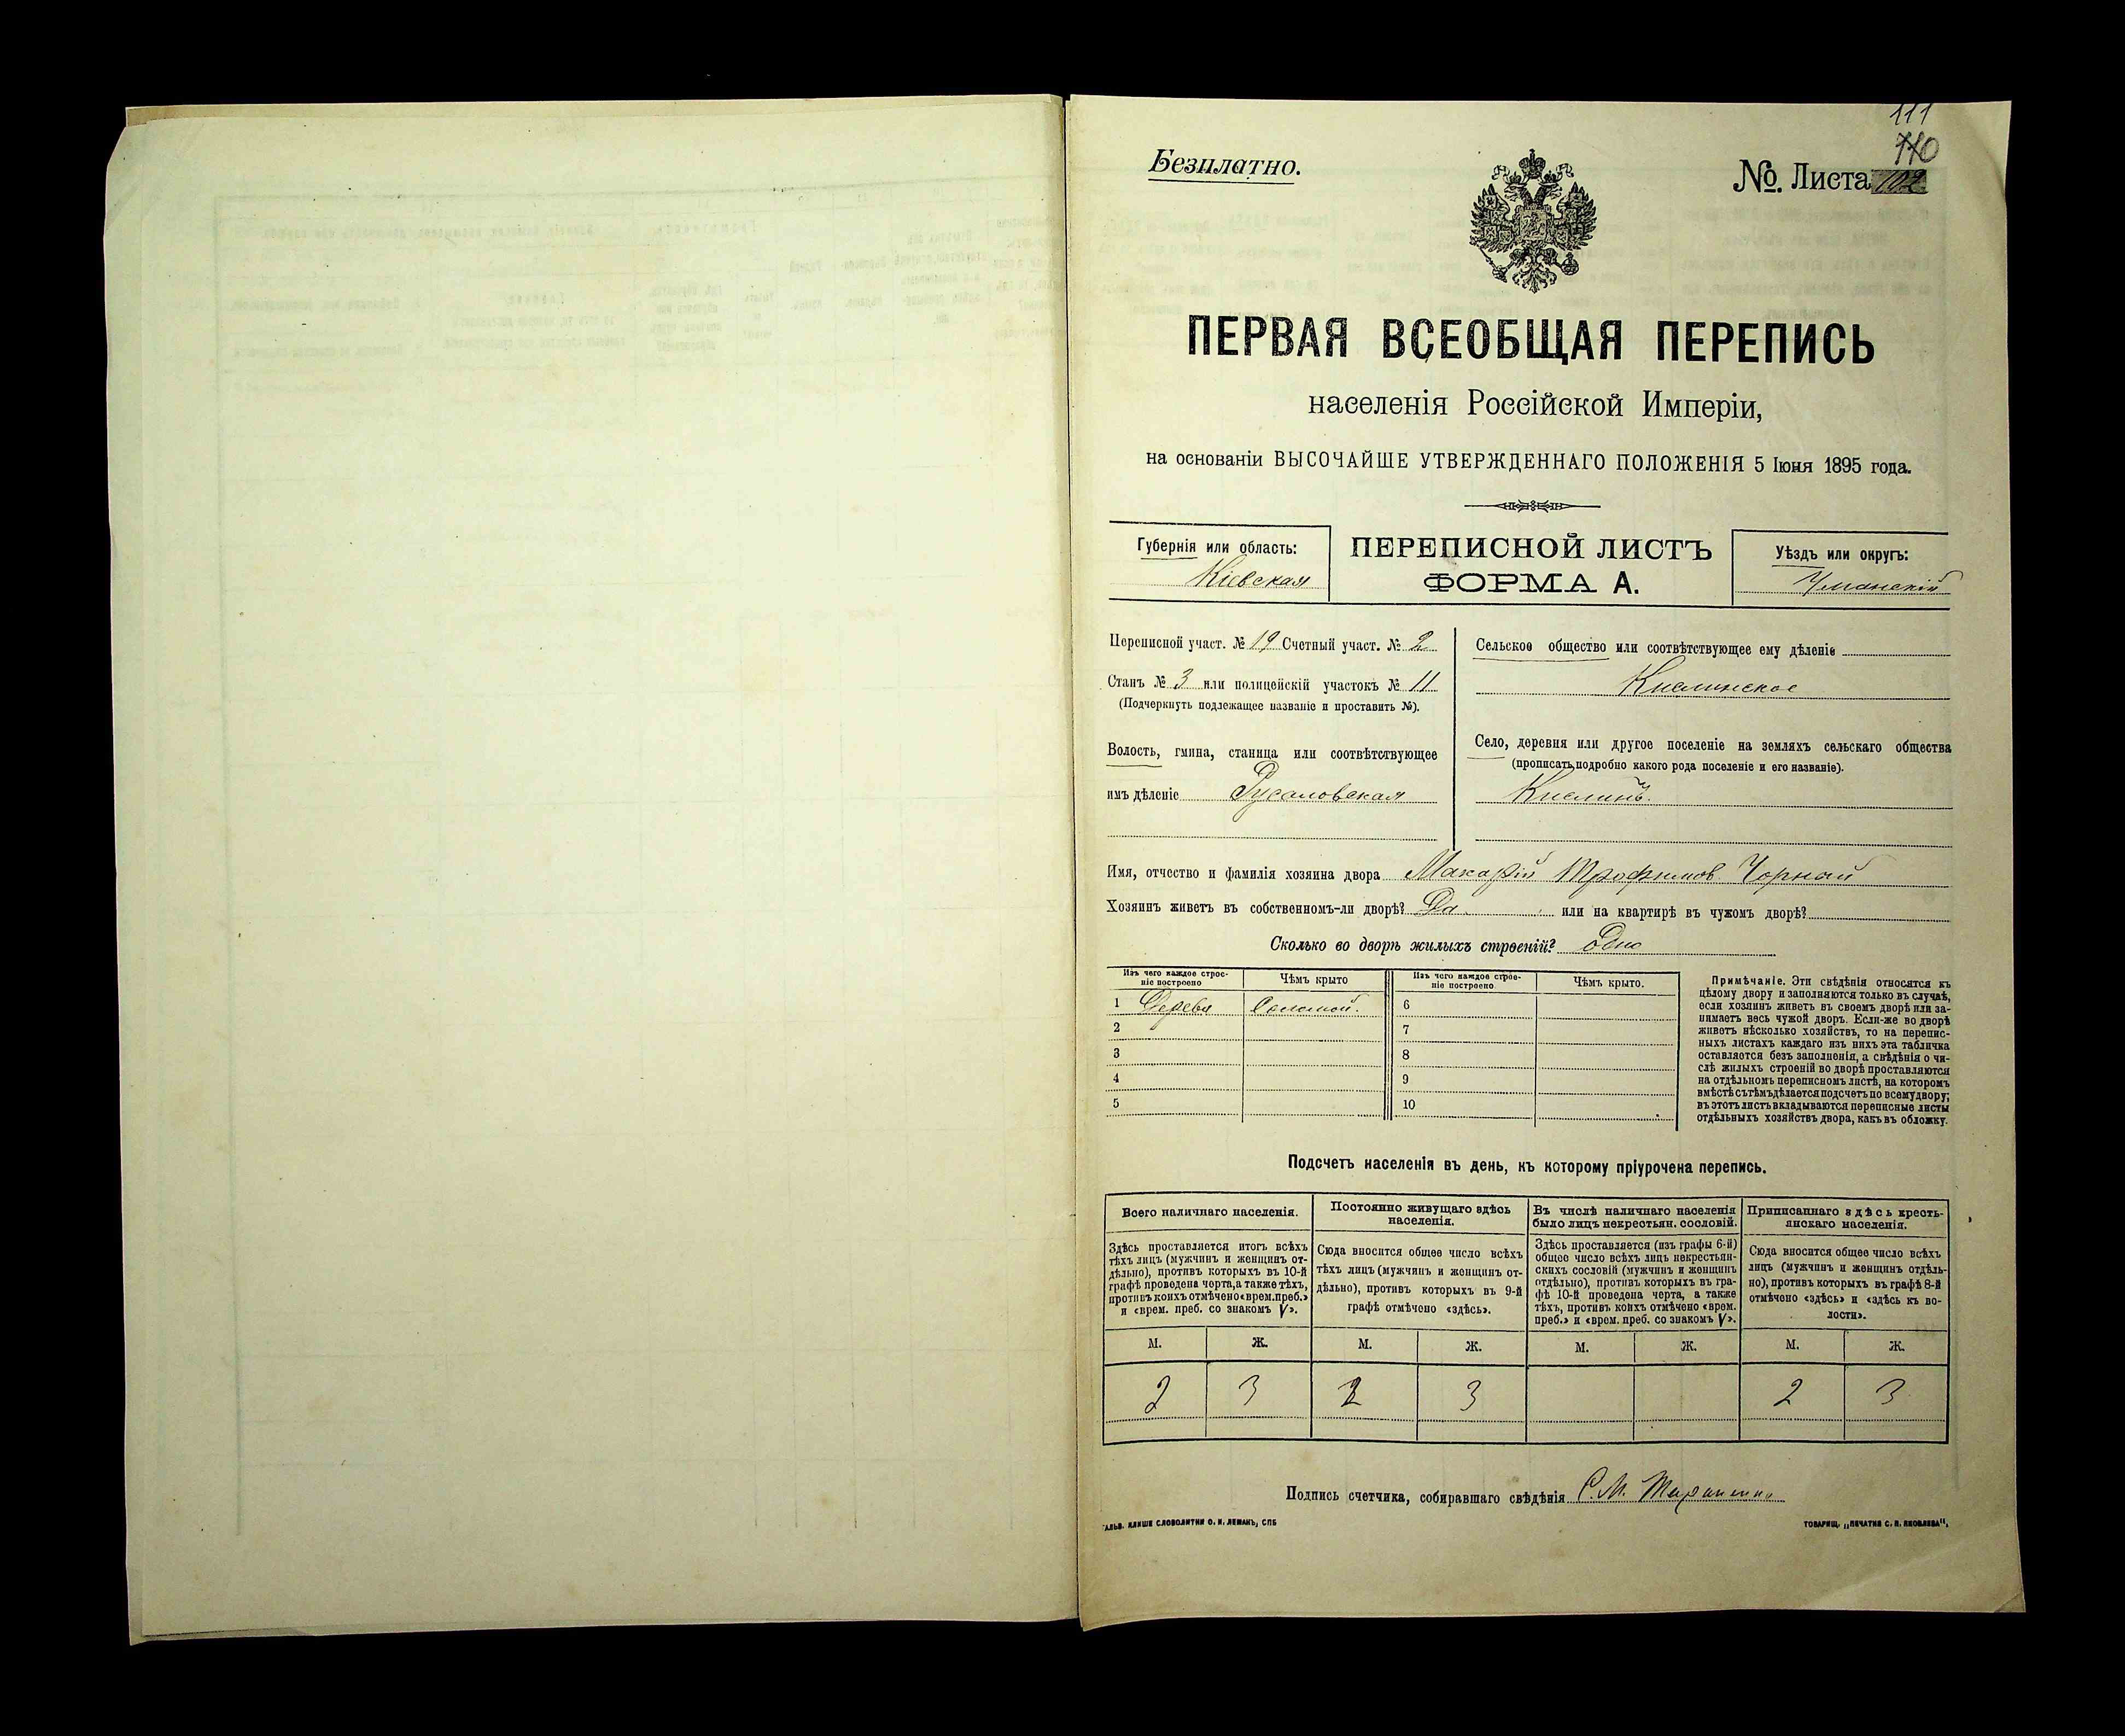 111
110
Безплатно.
№. Листа 102
ПЕРВАЯ ВСЕОБЩАЯ ПЕРЕПИСЬ
населенія Россійской Имперіи,
на основаніи ВЫСОЧАЙШЕ УТВЕРЖДЕННАГО ПОЛОЖЕНІЯ 5 Іюня 1895 года.
Губернія или область:
Кіевская
ПЕРЕПИСНОЙ ЛИСТЪ
ФОРМА А.
Уѣздъ или округъ:
Уманскій
Переписной участ. № 19 Счетный участ. № 2
Станъ № 3 или полицейскій участокъ № 11
(Подчеркнуть подлежащее названіе и проставить №).
Волость, гмина, станица или соотвѣтствующее
имъ дѣленіе Русаловская
Сельское общество или соотвѣтствующее ему дѣленіе
Кислинское
Село, деревня или другое поселеніе на земляхъ сельскаго общества
(прописать подробно какого рода поселеніе и его названіе).
Кислинъ.
Имя, отчество и фамилія хозяина двора Макарій Трофимов Чорный
Хозяинъ живетъ въ собственномъ-ли дворѣ? Да или на квартирѣ въ чужомъ дворѣ?
Сколько во дворѣ жилыхъ строеній? Одно
Изъ чего каждое строе-
ніе построено
Чѣмъ крыто
Изъ чего каждое строе-
ніе построено
Чѣмъ крыто.
1 Дерева Соломой. 6
2 7
3 8
4 9
5 10
Примѣчаніе. Эти свѣдѣнія относятся къ
цѣлому двору и заполняются только въ случаѣ,
если хозяинъ живетъ въ своемъ дворѣ или за-
нимаетъ весь чужой дворъ. Если-же во дворѣ
живетъ нѣсколько хозяйствъ, то на перепис-
ныхъ листахъ каждаго изъ нихъ эта табличка
оставляется безъ заполненія, а свѣдѣнія о чи-
слѣ жилыхъ строеній во дворѣ проставляются
на отдѣльномъ переписномъ листѣ, на которомъ
вмѣстѣ съ тѣмъ дѣлается подсчетъ по всему двору;
въ этотъ листъ вкладываются переписные листы
отдѣльныхъ хозяйствъ двора, какъ въ обложку.
Подсчетъ населенія въ день, къ которому пріурочена перепись.
Всего наличнаго населенія.
Здѣсь проставляется итогъ всѣхъ
тѣхъ лицъ (мужчинъ и женщинъ от-
дѣльно), противъ которыхъ въ 10-й
графѣ проведена черта, а также тѣхъ,
противъ коихъ отмѣчено «врем. преб.»
и «врем. преб. со знакомъ V».
Постоянно живущаго здѣсь
населенія.
Сюда вносится общее число всѣхъ
тѣхъ лицъ (мужчинъ и женщинъ от-
дѣльно), противъ которыхъ въ 9-й
графѣ отмѣчено «здѣсь».
Въ числѣ наличнаго населенія
было лицъ некрестьян. сословій.
Здѣсь проставляется (изъ графы 6-й)
общее число всѣхъ лицъ некрестьян-
скихъ сословій (мужчинъ и женщинъ
отдѣльно), противъ которыхъ въ гра-
фѣ 10-й проведена черта, а также
тѣхъ, противъ коихъ отмѣчено «врем.
преб.» и «врем. преб. со знакомъ V».
Приписаннаго здѣсь кресть-
янскаго населенія.
Сюда вносится общее число всѣхъ
лицъ (мужчинъ и женщинъ отдѣль-
но), противъ которыхъ въ графѣ 8-й
отмѣчено «здѣсь» и «здѣсь къ во-
лости».
М. Ж. М. Ж. М. Ж. М. Ж.
2 3 2 3 2 3
Подпись счетчика, собиравшаго свѣдѣнія С. М.
ГАЛЬВ. КЛИШЕ СЛОВОЛИТНИ О. И. ЛЕМАНЪ, СПБ
ТОВАРИЩ. „ПЕЧАТНЯ С. П. ЯКОВЛЕВА“,